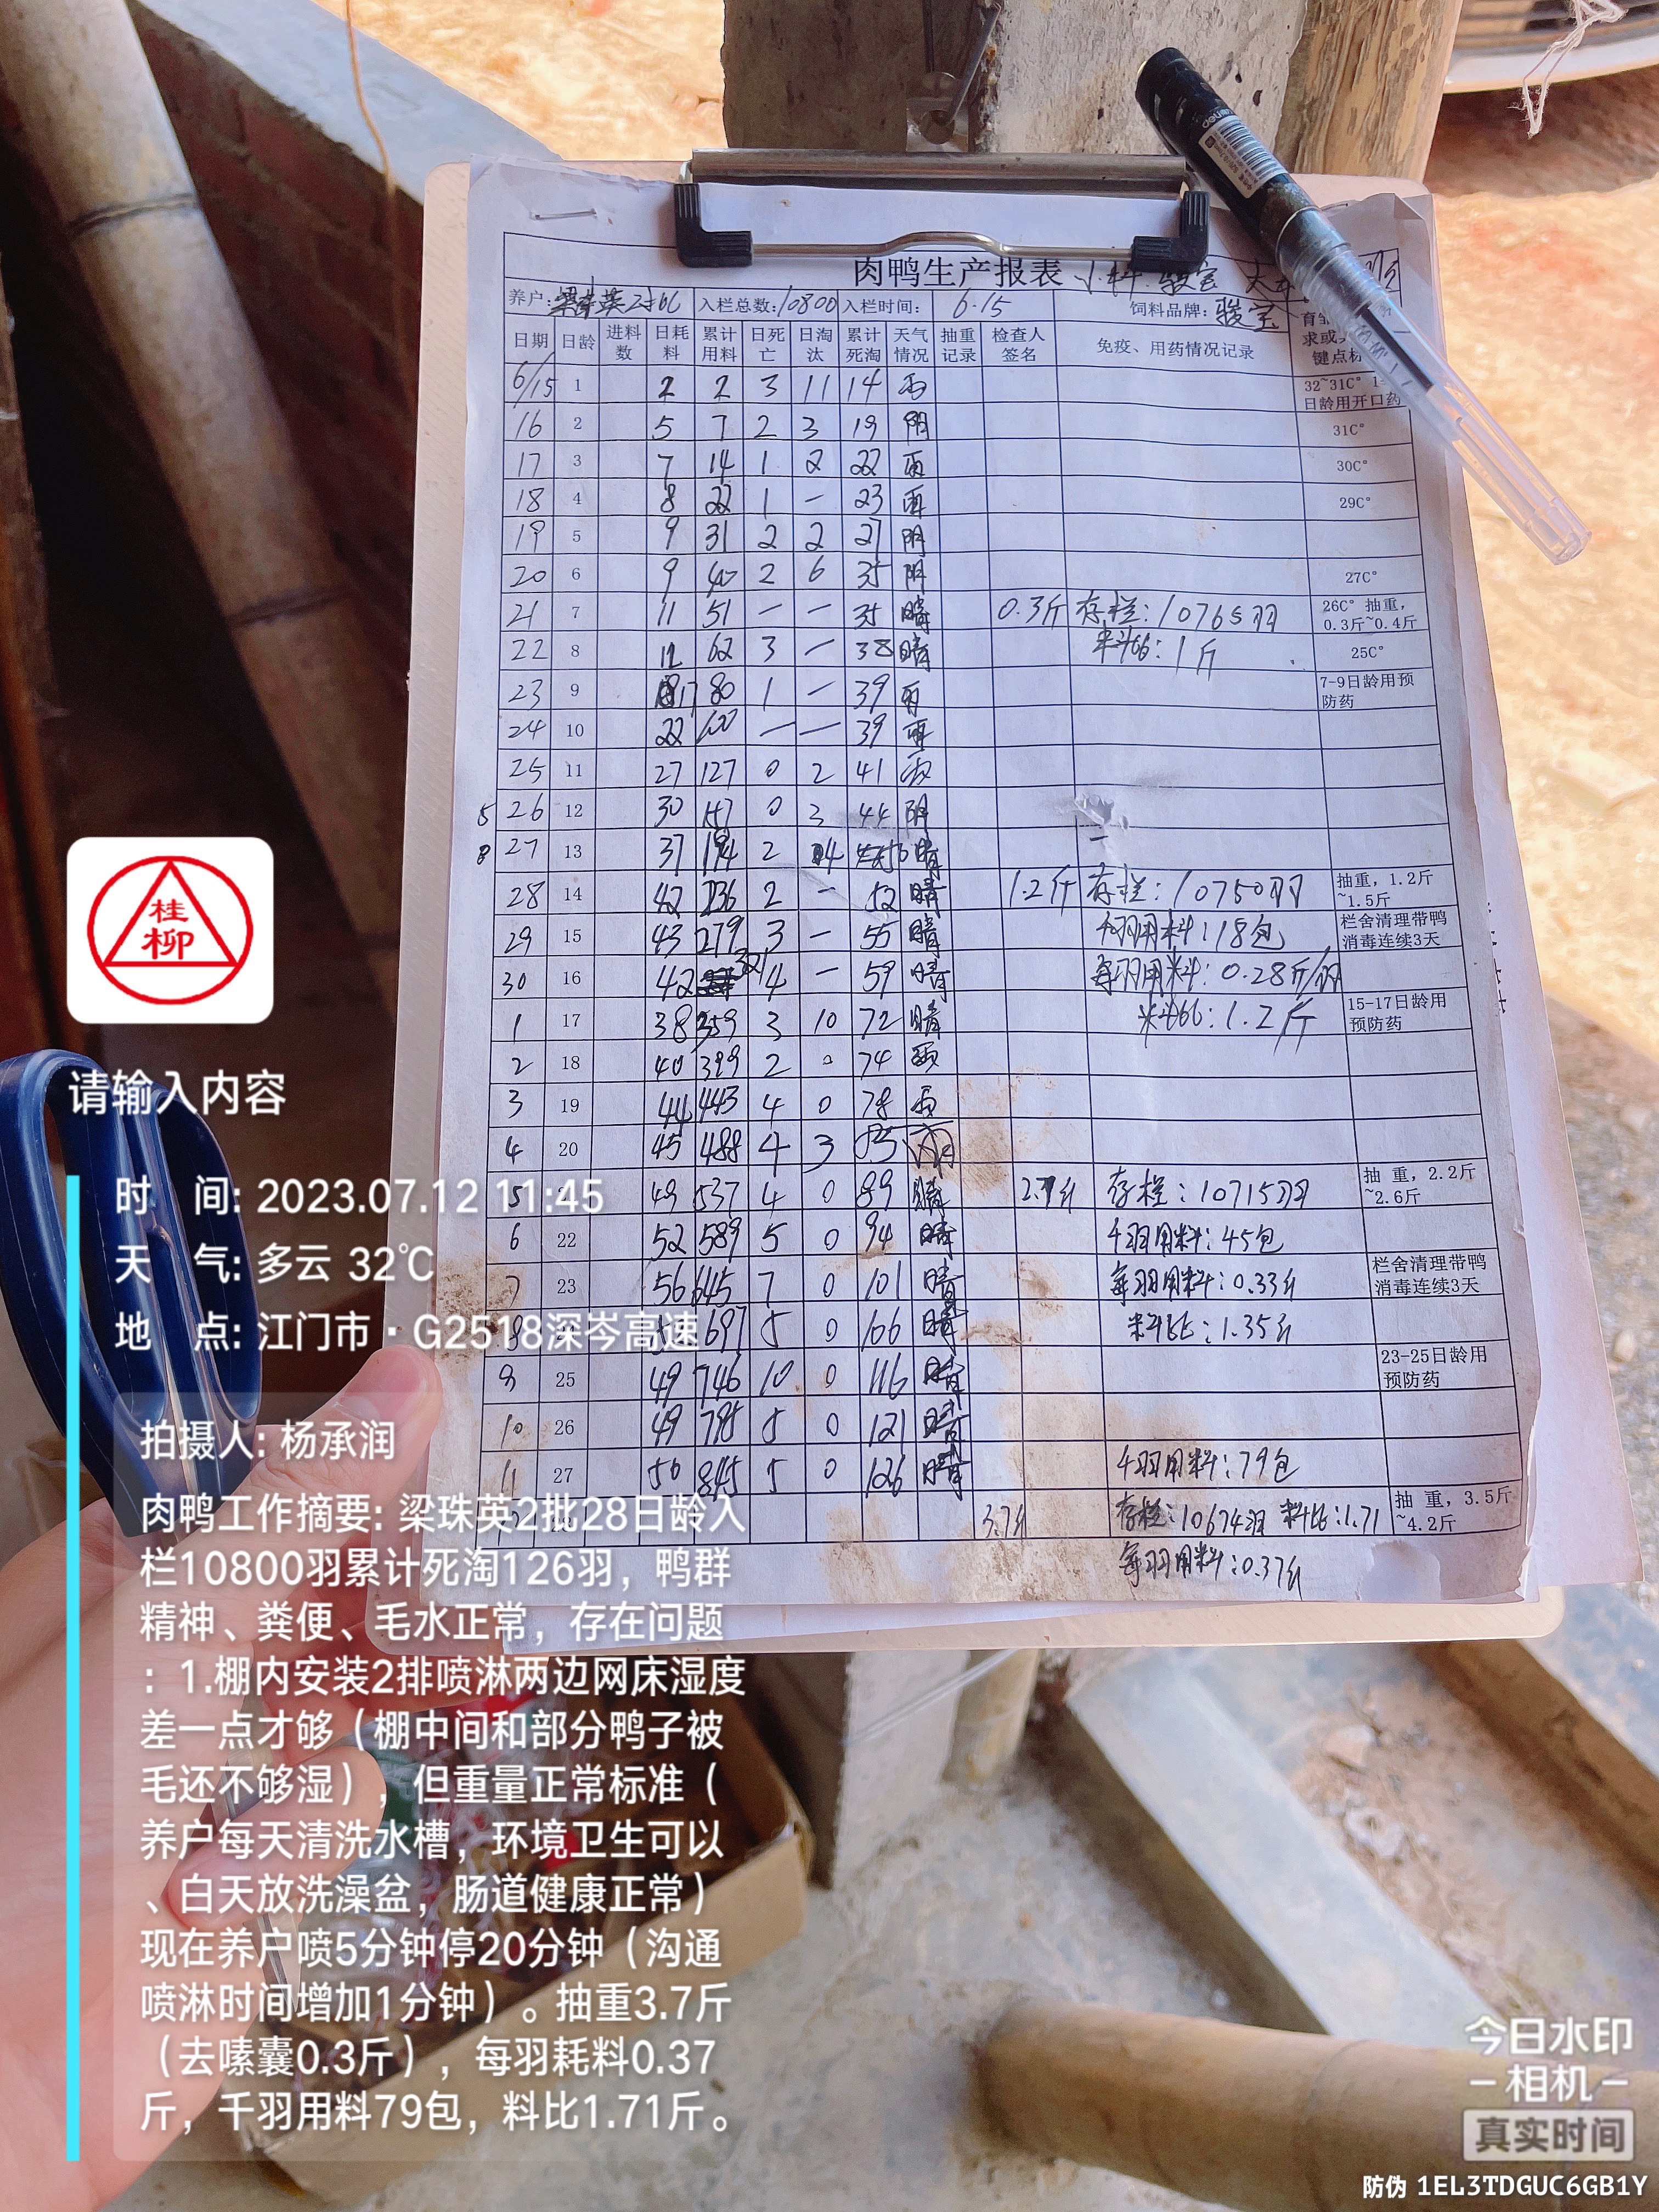 肉鸭生产报表 小料:骏宝
养户:梁珠英2批 入栏总数:10800 入栏时间: 6.15 饲料品牌:骏宝
日期 日龄 进料数 日耗料 累计用料 日死亡 日淘汰 累计死淘 天气情况 抽重记录 检查人签名 免疫、用药情况记录
6/15 1 2 2 3 11 14 雨 32~31C° 日龄用开口药
16 2 5 7 2 3 19 阴 31C°
17 3 7 14 1 2 22 雨 30C°
18 4 8 22 1 — 23 雨 29C°
19 5 9 31 2 2 27 阴
20 6 9 40 2 6 35 阴 27C°
21 7 11 51 — — 35 晴 0.3斤 存栏:10765羽 26C° 抽重,0.3斤~0.4斤
22 8 12 62 3 — 38 晴 料比:1斤 25C°
23 9 80 1 — 39 雨 7-9日龄用预防药
24 10 22 100 — — 39 雨
25 11 27 127 0 2 41 雨
5 26 12 30 157 0 3 44 阴
8 27 13 37 194 2 4 晴 —
28 14 42 236 2 — 52 晴 1.2斤 存栏:10750羽 抽重,1.2斤~1.5斤
29 15 43 279 3 — 55 晴 千羽用料:18包 栏舍清理带鸭消毒连续3天
30 16 42 321 4 — 59 晴 每羽用料:0.28斤/羽
1 17 38 359 3 10 72 晴 料比:1.2斤 15-17日龄用预防药
2 18 40 399 2 0 74 雨
3 19 44 443 4 0 78 雨
4 20 45 488 4 3 85 雨
5 49 537 4 0 89 晴 存栏:10715羽 抽 重,2.2斤~2.6斤
6 22 52 589 5 0 94 晴 千羽用料:45包
7 23 56 645 7 0 101 晴 每羽用料:0.33斤 栏舍清理带鸭消毒连续3天
8 697 5 0 106 晴 料比:1.35斤
9 25 49 746 10 0 116 晴 23-25日龄用预防药
10 26 49 795 5 0 121 晴
11 27 50 845 5 0 126 晴 千羽用料:79包
3.7斤 存栏:10674羽 料比:1.71 抽 重,3.5斤~4.2斤
每羽用料:0.37斤
deli
桂柳
请输入内容
时 间: 2023.07.12 11:45
天 气: 多云 32℃
地 点: 江门市·G2518深岑高速
拍摄人: 杨承润
肉鸭工作摘要: 梁珠英2批28日龄入
栏10800羽累计死淘126羽，鸭群
精神、粪便、毛水正常，存在问题
：1.棚内安装2排喷淋两边网床湿度
差一点才够（棚中间和部分鸭子被
毛还不够湿），但重量正常标准（
养户每天清洗水槽，环境卫生可以
、白天放洗澡盆，肠道健康正常）
现在养户喷5分钟停20分钟（沟通
喷淋时间增加1分钟）。抽重3.7斤
（去嗉囊0.3斤），每羽耗料0.37
斤，千羽用料79包，料比1.71斤。
今日水印
相机
真实时间
防伪 1EL3TDGUC6GB1Y